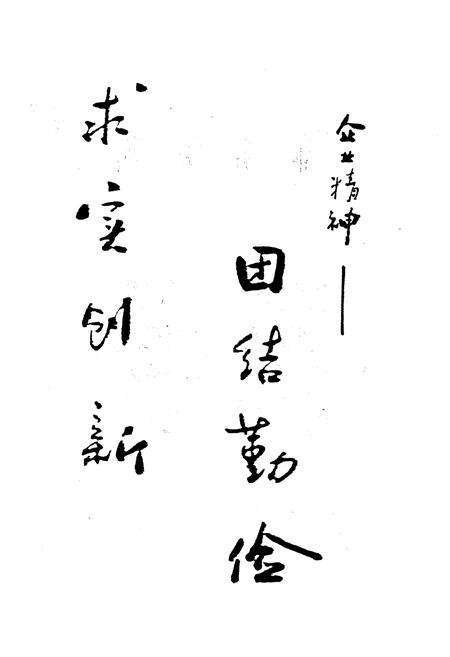 企业精神——
团结勤俭
求实创新